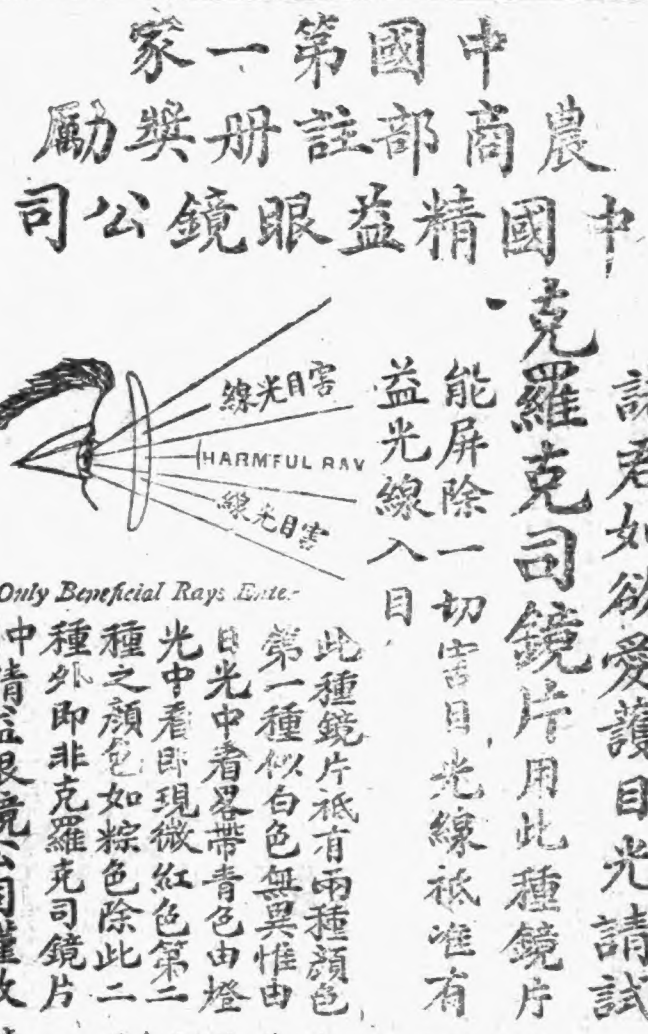 中國第一家
農商部註册獎勵
中國精益眼鏡公司
諸君如欲愛護目光請試
克羅克司鏡片用此種鏡片
能屏除一切害目光線祗唯有
益光線入目
害目光線
HARMFUL RAY
害目光線
Only Beneficial Rays
此種鏡片祗有兩種顔色
第一種似白色無異惟由
日光中看畧帶青色由橙
光中看即現微紅色第二
種之顔色如粽色除此二
種外即非克羅克司鏡片
中精益眼鏡公司